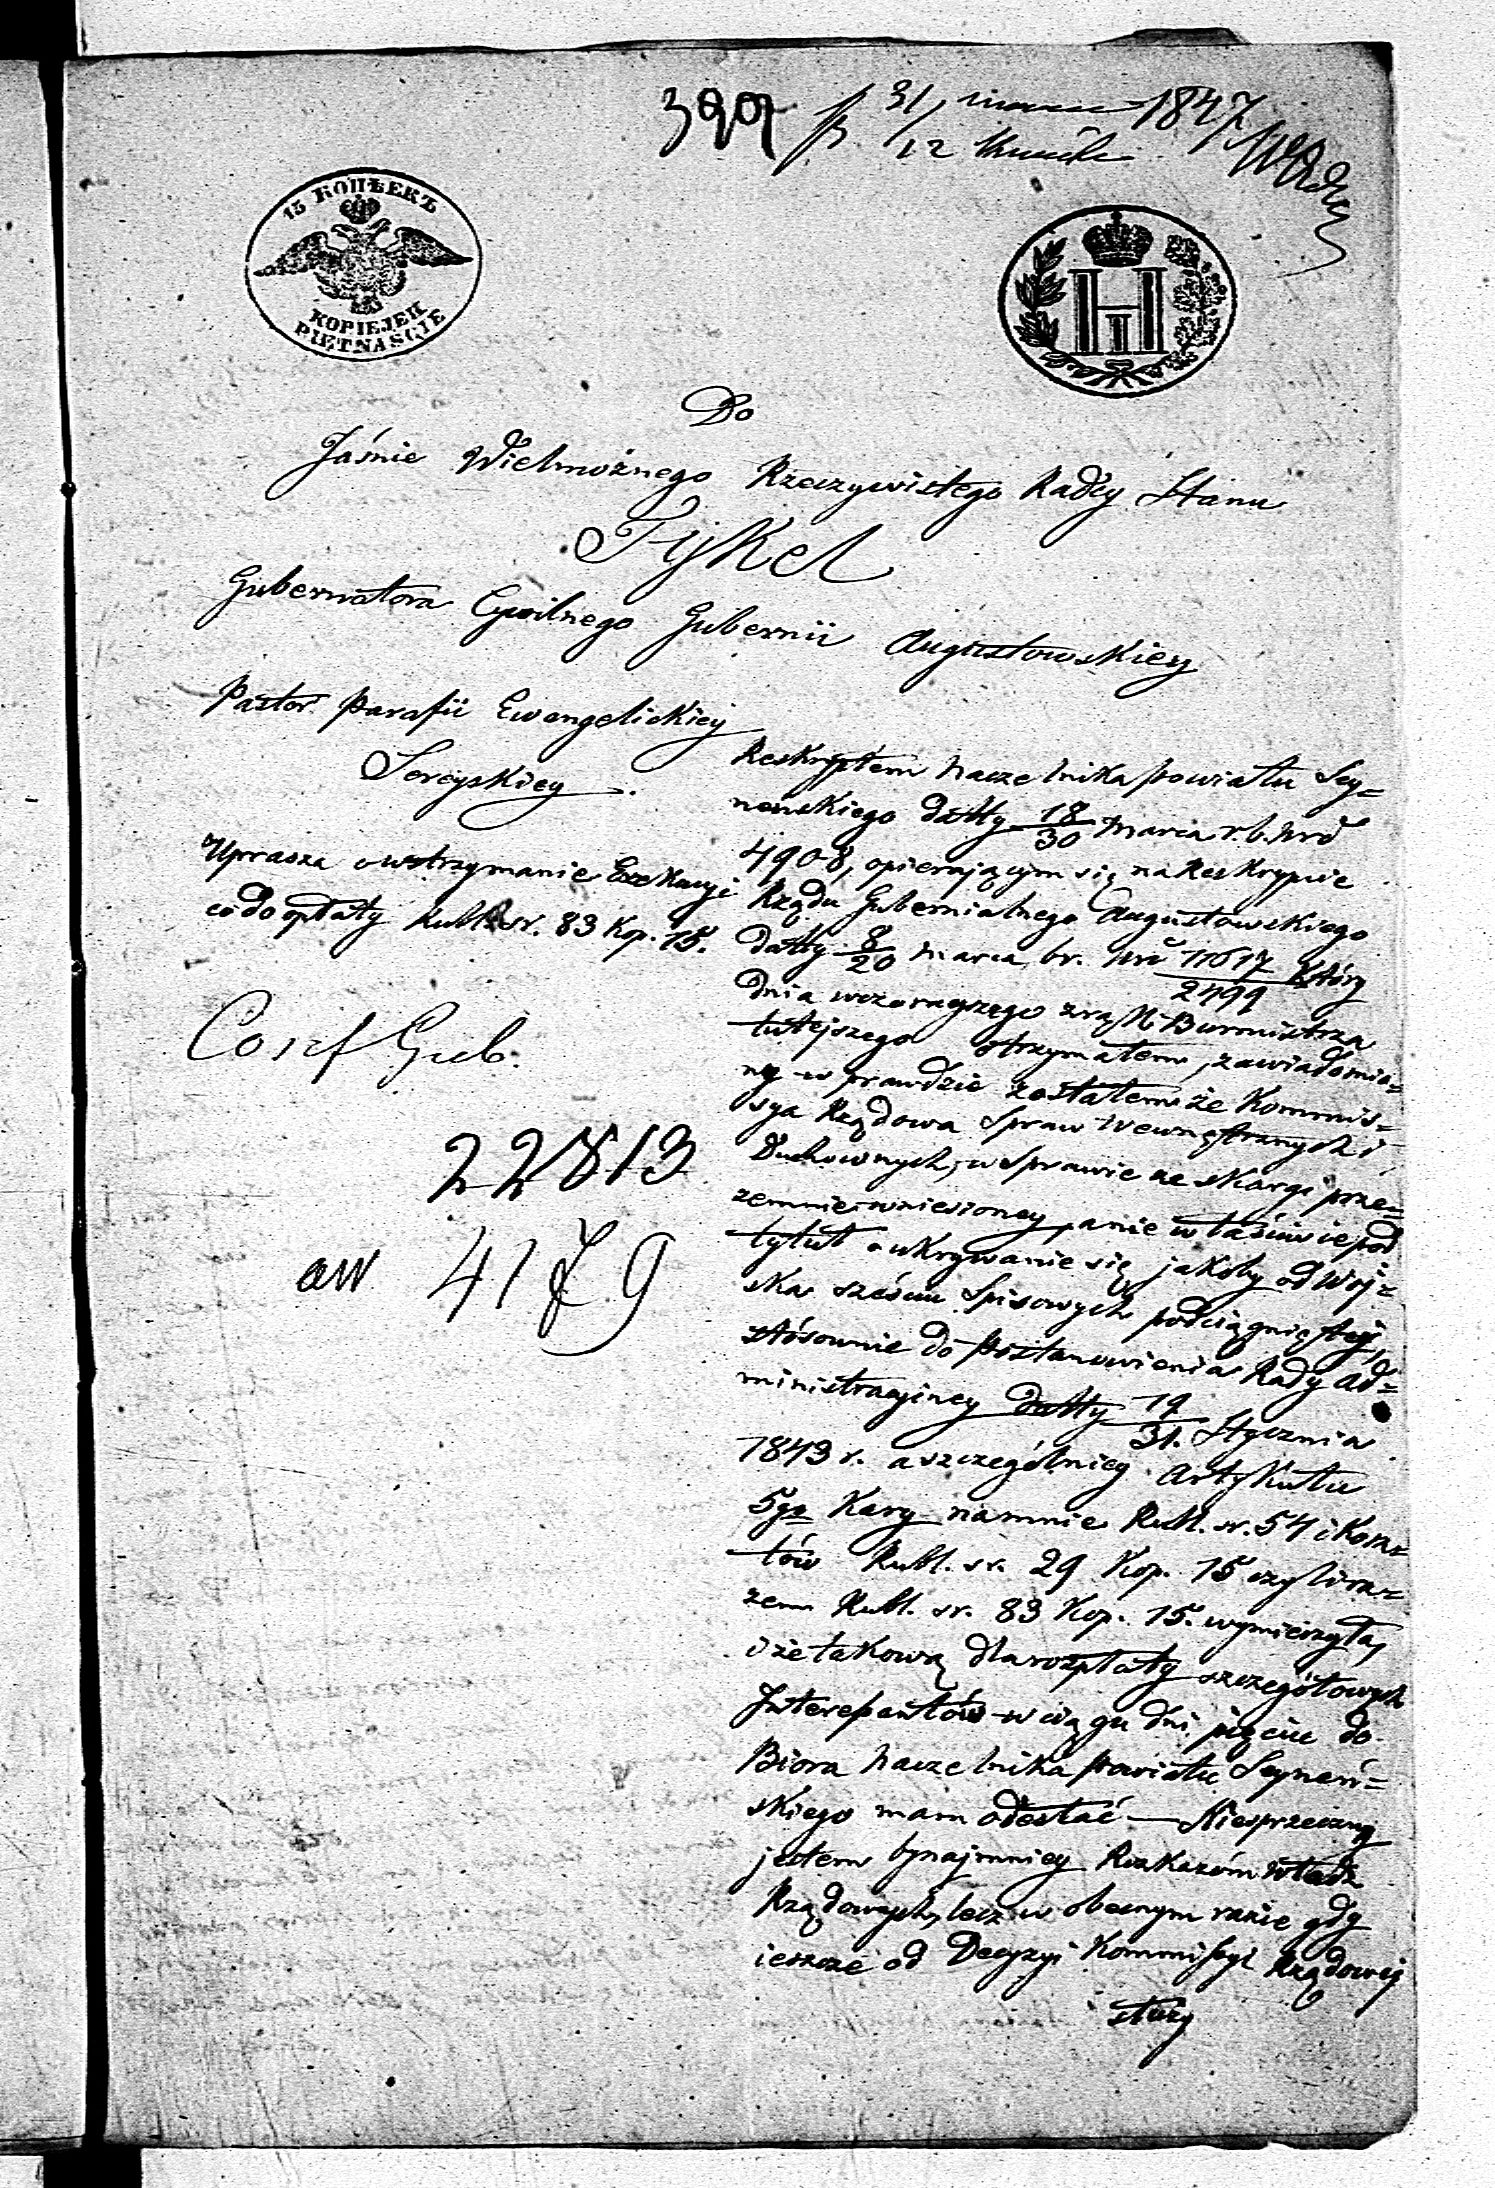 3907 31/12 marca 1847
15 КОПѢЕКЪ
KOPIEJEK
PIĘTNAŚCIE
Do
Jaśnie Wielmożnego Rzeczywistego Radcy Stanu
Fijkel
Gubernatora Cywilnego Gubernii Augustowskiey
Pastor Parafii Ewangelickiey
Sereyskiey.
Uprasza o wstrzymanie Exekucyi
co do opłaty Rubli sr. 83 Kop. 15.
22813
aw 4179
Reskryptem Naczelnika Powiatu Sey=
neńskiego datty 18/30 Marca r. b. Nro
4908, opierającym się na Reskrypcie
Rządu Gubernialnego Augustowskiego
datty 8/20 Marca br. Nro 11617/2499 który
dnia wczorayszego z rąk Burmistrza
tutejszego otrzymałem, zawiadomio=
ny w prawdzie zostałem że Kommis=
sya Rządowa Spraw Wewnętrznych i
Duchownych, w sprawie ze skargi prze=
zemnie wniesioney, a nie właściwie pod
tytuł o ukrywanie się jakoby od Woj=
ska sześciu Spisowych podciągniętey,
stósownie do Postanowienia Rady Ad=
ministracyiney datty 19/31. Stycznia
1843 r. a szczególniey Artykułu
5go Kary na mnie Rubl. sr. 54 i Kosz=
tów Rubl. sr. 29 Kop. 15 czyli ra=
zem Rubl. sr. 83 Kop. 15. wymierzyła,
i że takową dla rozpłaty szczegółowych
Interessantów w ciągu dni pięciu do
Biora Naczelnika Powiatu Seyneń=
skiego mam odesłać — Niesprzeczny
jestem bynajmniey Rozkazom Władz
Rządowych, lecz w obecnym razie gdy
ieszcze od Decyzyi Kommissyi Rządowej
służy